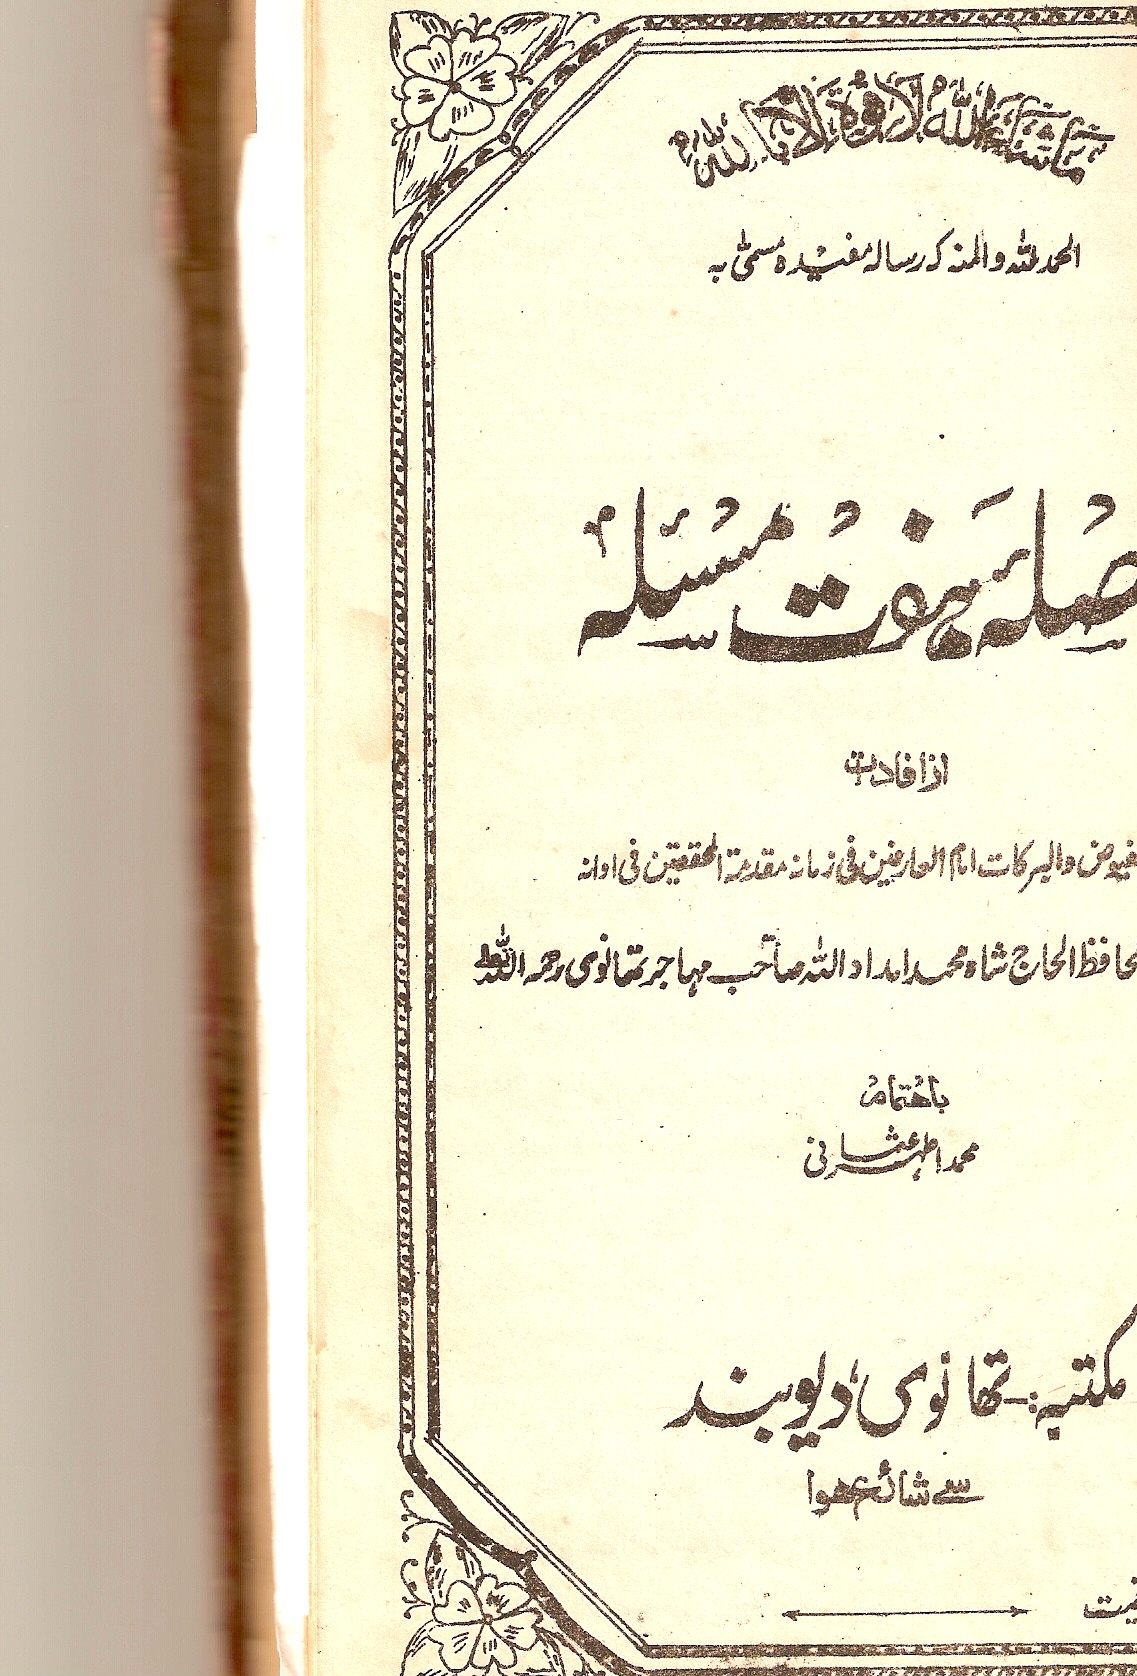 ماشاء اللہ لا قوۃ الا باللہ
الحمد للہ والمنہ کہ رسالہ مفیدہ مسمیٰ بہ
صلہ ہفت مسئلہ
از افادات
فیوض والبرکات امام العارفین فی زمانہ مقدمۃ المحققین فی اوانہ
حافظ الحاج شاہ محمد امداد اللہ صاحب مہاجر تھانوی رحمہ اللہ
باھتمام
محمد اظہر عثمانی
مکتبہ:- تھانوی، دیوبند
سے شائع ھوا